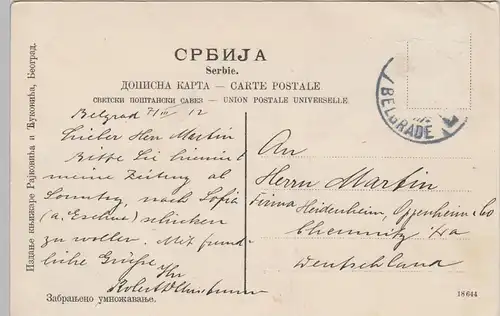 СРБИЈА
Serbie.
ДОПИСНА КАРТА — CARTE POSTALE
СВЕТСКИ ПОШТАНСКИ САВЕЗ — UNION POSTALE UNIVERSELLE
Издање књижаре Рајковића и Ћуковића, Београд.
BELGRADE
Belgrad 12
Lieber Herr Martin
Bitte Sie hiermit
meine Zeitung ab
Sonntag, nach Sofia
schicken
zu wollen. Mit freund-
liche Grüße
Ihr
Robert
An
Herrn Martin
Firma Heidenheim, Oppenheim & Co
Chemnitz
Deutschland
Забрањено умножавање.
18644